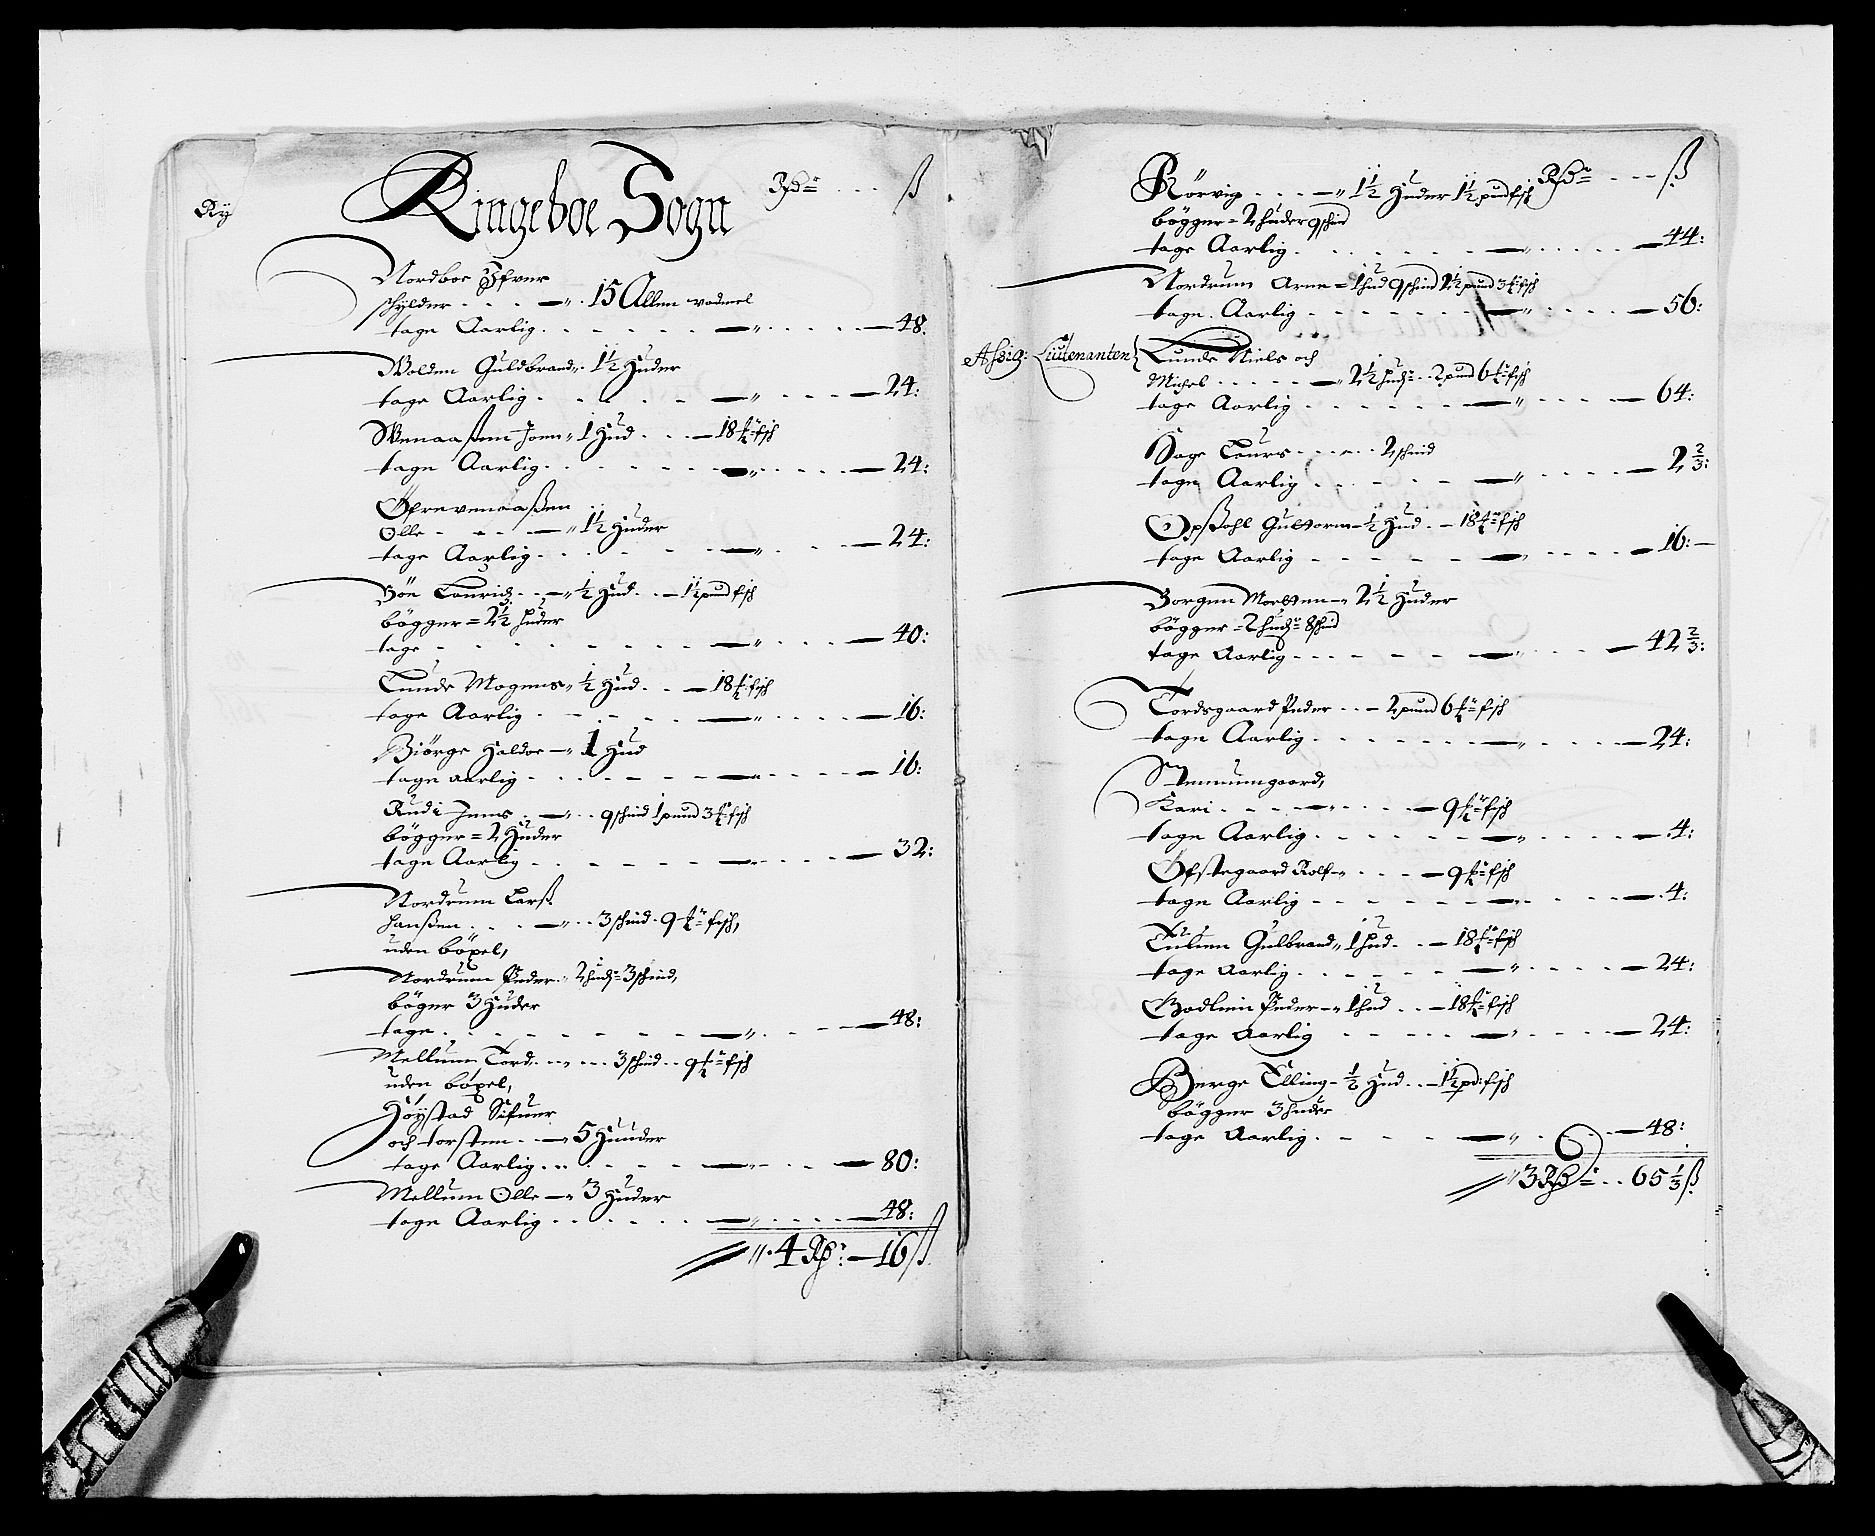 Ry
Ringeboe Sogn Rdr ß
Nordboe Ifver
schylder 15 Allen vadmel
tage Aarlig 48
Wolden Guldbrand 1½ Huder
tage Aarlig 24:
Wenaaßen Joen 1 Hud 18 fisch
tage Aarlig 24:
Øfrevenaaßen
Olle 1½ Huder
tage Aarlig 24:
Böe Lauridz ½ Hud 1½ pund fisch
bögger = 2½ huder
tage 40:
Lunde Mogens ½ Hud 18 fisch
tage Aarlig 16:
Biörge Haldoe 1 Hud
tage aarlig 16:
Rudi Jens 9 schind 1 pund 3 fisch
bögger = 2 Huder
tage Aarlig 32:
Nordrum Larß
Hanßen 3 schind 9 fisch,
uden böxel,
Nordrum Peder 2 hudr 3 schind,
böger 3 Huder
tage 48:
Mellum Tord 3 schind 9 fisch
uden böxel,
Höystad Sifuer
och torsten 5 Huuder
tage Aarlig 80:
Mellum Olle 3 Huder
tage Aarlig 48:
4 Rdr: 16 ß
Rörvig 1½ Huder 1½ pud fisch Rdr ß
bögger = 2 huder 9 schind
tage Aarlig 44:
Nordrum Arne = 1 hud 9 schind 1½ pund 3 fisch
tage Aarlig 56:
Assig: Liutenanten
Lunde Niels och
Michel 2½ hudr 2 pund 6 fisch
tage Aarlig 64:
Hage Laurs 2 schind
tage Aarlig 2⅔:
Opßahl Guttorm ½ Hud 18 fisch
tage Aarlig 16:
Borgen Morten 2½ Huder
bögger = 2 hudr 8 schind
tage Aarlig 42⅔:
Tordsgaard Peder 2 pund 6 fisch
tage Aarlig 24:
Stenumgaard,
Kari 9 fisch
tage Aarlig 4:
Øfstegaard Rolf 9 fisch
tage Aarlig 4:
Gulbrand 1 hud 18 fisch
tage Aarlig 24:
Bodlien Peder 1 hud 18 fisch
tage Aarlig 24:
Berge Elling ½ Hud 1½ pd: fisch
bögger 3 huder
tage Aarlig 48:
3 Rdr 65⅓ ß